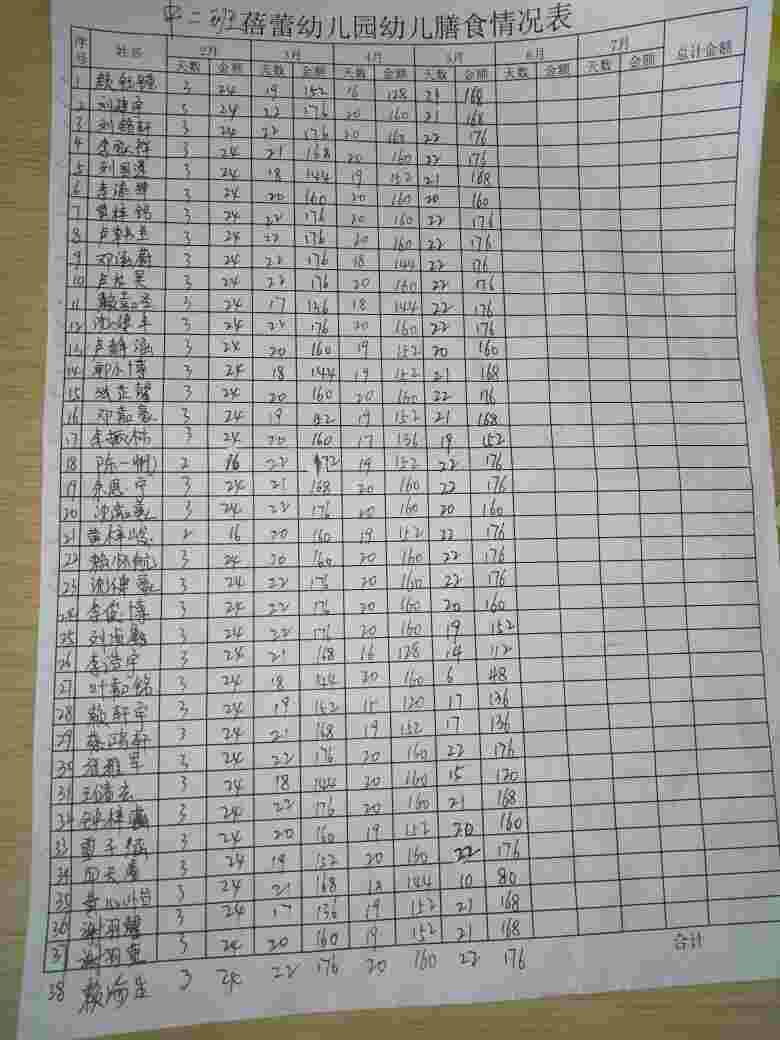 中二班蓓蕾幼儿园幼儿膳食情况表
序号 姓名 2月 3月 4月 5月 6月 7月 总计金额
天数 金额 天数 金额 天数 金额 天数 金额 天数 金额 天数 金额
1 3 24 19 152 16 128 21 168
2 刘建宇 3 24 22 176 20 160 21 168
3 3 24 22 176 20 160 22 176
4 3 24 21 168 20 160 22 176
5 3 24 18 144 19 152 21 168
6 3 24 20 160 20 160 20 160
7 黄梓铭 3 24 22 176 20 160 22 176
8 3 24 22 176 20 160 22 176
9 邓涵蔚 3 24 22 176 18 144 22 176
10 3 24 22 176 20 160 22 176
11 3 24 17 136 18 144 22 176
12 3 24 22 176 20 160 22 176
13 卢静涵 3 24 20 160 19 152 20 160
14 3 24 18 144 19 152 21 168
15 3 24 20 160 20 160 22 176
16 邓嘉豪 3 24 19 152 19 152 21 168
17 3 24 20 160 17 136 19 152
18 2 16 22 19 152 22 176
19 3 24 21 168 20 160 22 176
20 3 24 22 176 20 160 20 160
21 黄梓 2 16 20 160 19 152 22 176
22 3 24 20 160 20 160 22 176
23 3 24 22 176 20 160 22 176
24 李俊博 3 24 22 176 20 160 20 160
25 3 24 22 176 20 160 19 152
26 李浩宇 3 24 21 168 16 128 14 112
27 叶嘉铭 3 24 18 144 20 160 6 48
28 赖轩宇 3 24 19 152 15 120 17 136
29 3 24 21 168 19 152 17 136
30 3 24 22 176 20 160 22 176
31 3 24 18 144 20 160 15 120
32 钟梓涵 3 24 22 176 20 160 21 168
33 3 24 20 160 19 152 20 160
34 3 24 19 152 20 160 22 176
35 3 24 21 168 18 144 10 80
36 谢羽馨 3 24 17 136 19 152 21 168
37 3 24 20 160 19 152 21 168
38 3 24 22 176 20 160 22 176
合计